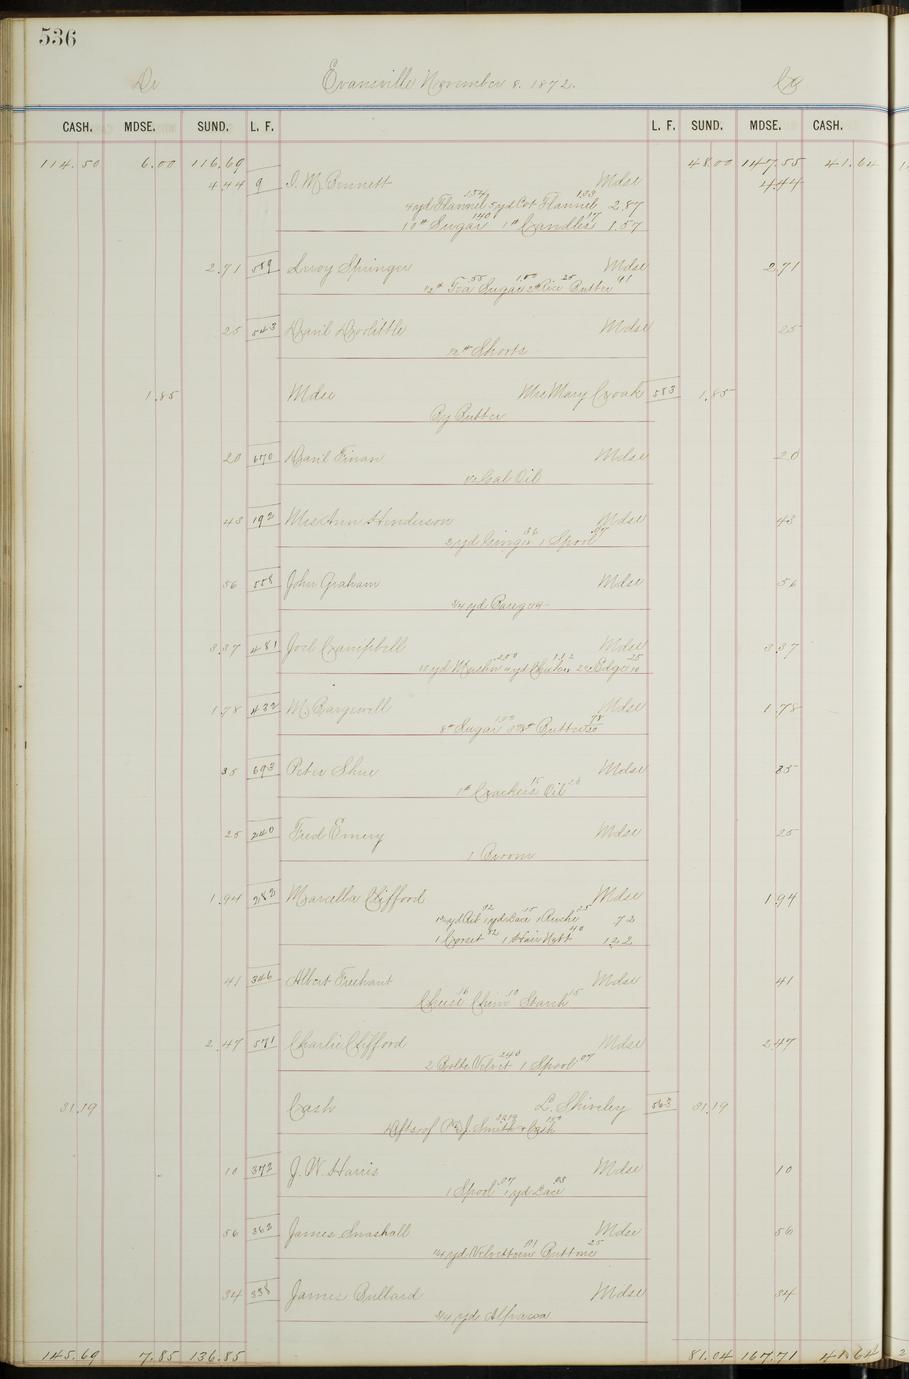 536
Dr Evansville November 8. 1872. Cr
CASH. MDSE. SUND. L. F. L. F. SUND. MDSE. CASH.
114.50 6.00 116.69 48.00 147.55 41.64
4.44 9 I. M. Bennett Mdse 4.44
4 yd Flannel 1.54 5 yd Cot Flannel 1.33 2.87
10# Sugar 1.40 1# Candles 17 1.57
2.71 559 Leroy Springer Mdse 2.71
1/2# Tea 55 Sugar 1.00 2# Rice 25 Butter 91
25 543 David Doolittle Mdse 25
12# Shorts
1.85 Mdse Mrs Mary Croak 553 1.85
By Butter
20 670 David Finan Mdse 20
1/2 Gal Oil
43 192 Miss Ann Henderson Mdse 43
2 yd 36 1 Spool 07
56 558 John Graham Mdse 56
3/4 yd
3.37 481 Joel Campbell Mdse 3.37
10 yd Muslin 2.00 4 yd 1.12 2 yd Edgein 25
1.78 432 M. Bargewell Mdse 1.78
8# Sugar 1.00 Butter 78
35 693 Peter Shue Mdse 35
1# Crackers 15 Oil 20
25 240 Fred Emery Mdse 25
1 Broom
1.94 282 Marcella Clifford Mdse 1.94
yd Rib 32 1 yd Lace 15 1 Ruche 25 72
1 Corset 82 1 Hair Nett 40 1.22
41 346 Albert Trechant Mdse 41
Cheese 16 10 Starch 15
2.47 571 Charlie Clifford Mdse 2.47
2 Bolts Velvet 2.40 1 Spool 07
31.19 Cash L. Shiveley 563 31.19
J. Smith & Cash
10 372 J. W. Harris Mdse 10
1 Spool 07 1 yd Lace 03
56 362 James Smashall Mdse 56
1/4 yd Velveteen 31 Buttons 25
34 338 James Bullard Mdse 34
3/4 yd Alpacca
145.69 7.85 136.85 81.04 167.71 41.64